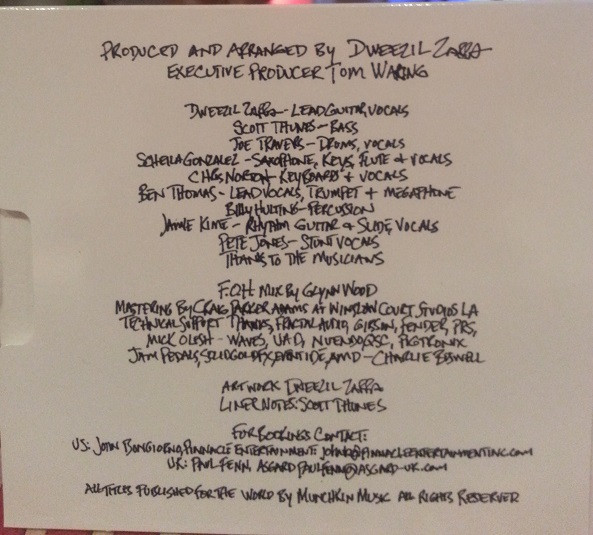 PRODUCED AND ARRANGED BY DWEEZIL ZAPPA
EXECUTIVE PRODUCER TOM WARING
DWEEZIL ZAPPA - LEAD GUITAR, VOCALS
SCOTT THUNES - BASS
JOE TRAVERS - DRUMS, VOCALS
SCHEILA GONZALEZ - SAXOPHONE, KEYS, FLUTE & VOCALS
CHRIS NORTON - KEYBOARDS + VOCALS
BEN THOMAS - LEAD VOCALS, TRUMPET + MEGAPHONE
BILLY HULTING - PERCUSSION
JAMIE KIME - RHYTHM GUITAR & SLIDE, VOCALS
PETE JONES - STUNT VOCALS
THANKS TO THE MUSICIANS
F.O.H MIX BY GLYNN WOOD
MASTERING BY CRAIG PARKER ADAMS AT WINSLOW COURT STUDIOS LA
TECHNICAL SUPPORT THANKS, FRACTAL AUDIO, GIBSON, FENDER, PRS,
MICK OLESH - WAVES, UAD, NUENDO, QSC, PIGTRONIX
JAM PEDALS, SOLIDGOLDFX, EVENTIDE, AMD - CHARLIE BOSWELL
ARTWORK DWEEZIL ZAPPA
LINER NOTES: SCOTT THUNES
FOR BOOKINGS CONTACT:
US: JOHN BONGIORNO, PINNACLE ENTERTAINMENT: @PINNACLEENTERTAINMENTINC.COM
UK: PAUL FENN, ASGARD PAULFENN@ASGARD-UK.COM
ALL TITLES PUBLISHED FOR THE WORLD BY MUNCHKIN MUSIC ALL RIGHTS RESERVED